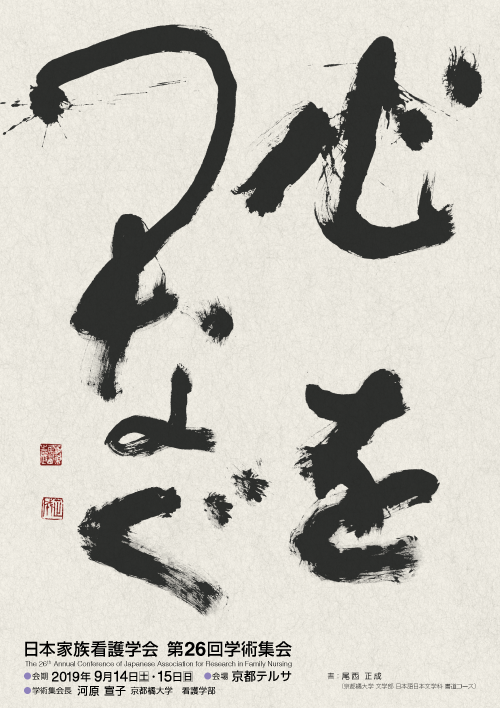 心を
つなぐ
日本家族看護学会 第26回学術集会
The 26th Annual Conference of Japanese Association for Research in Family Nursing
●会期 2019年 9月14日土・15日日 ●会場 京都テルサ
●学術集会長 河原 宣子 京都橘大学 看護学部
書：尾西 正成
（京都橘大学 文学部 日本語日本文学科 書道コース）